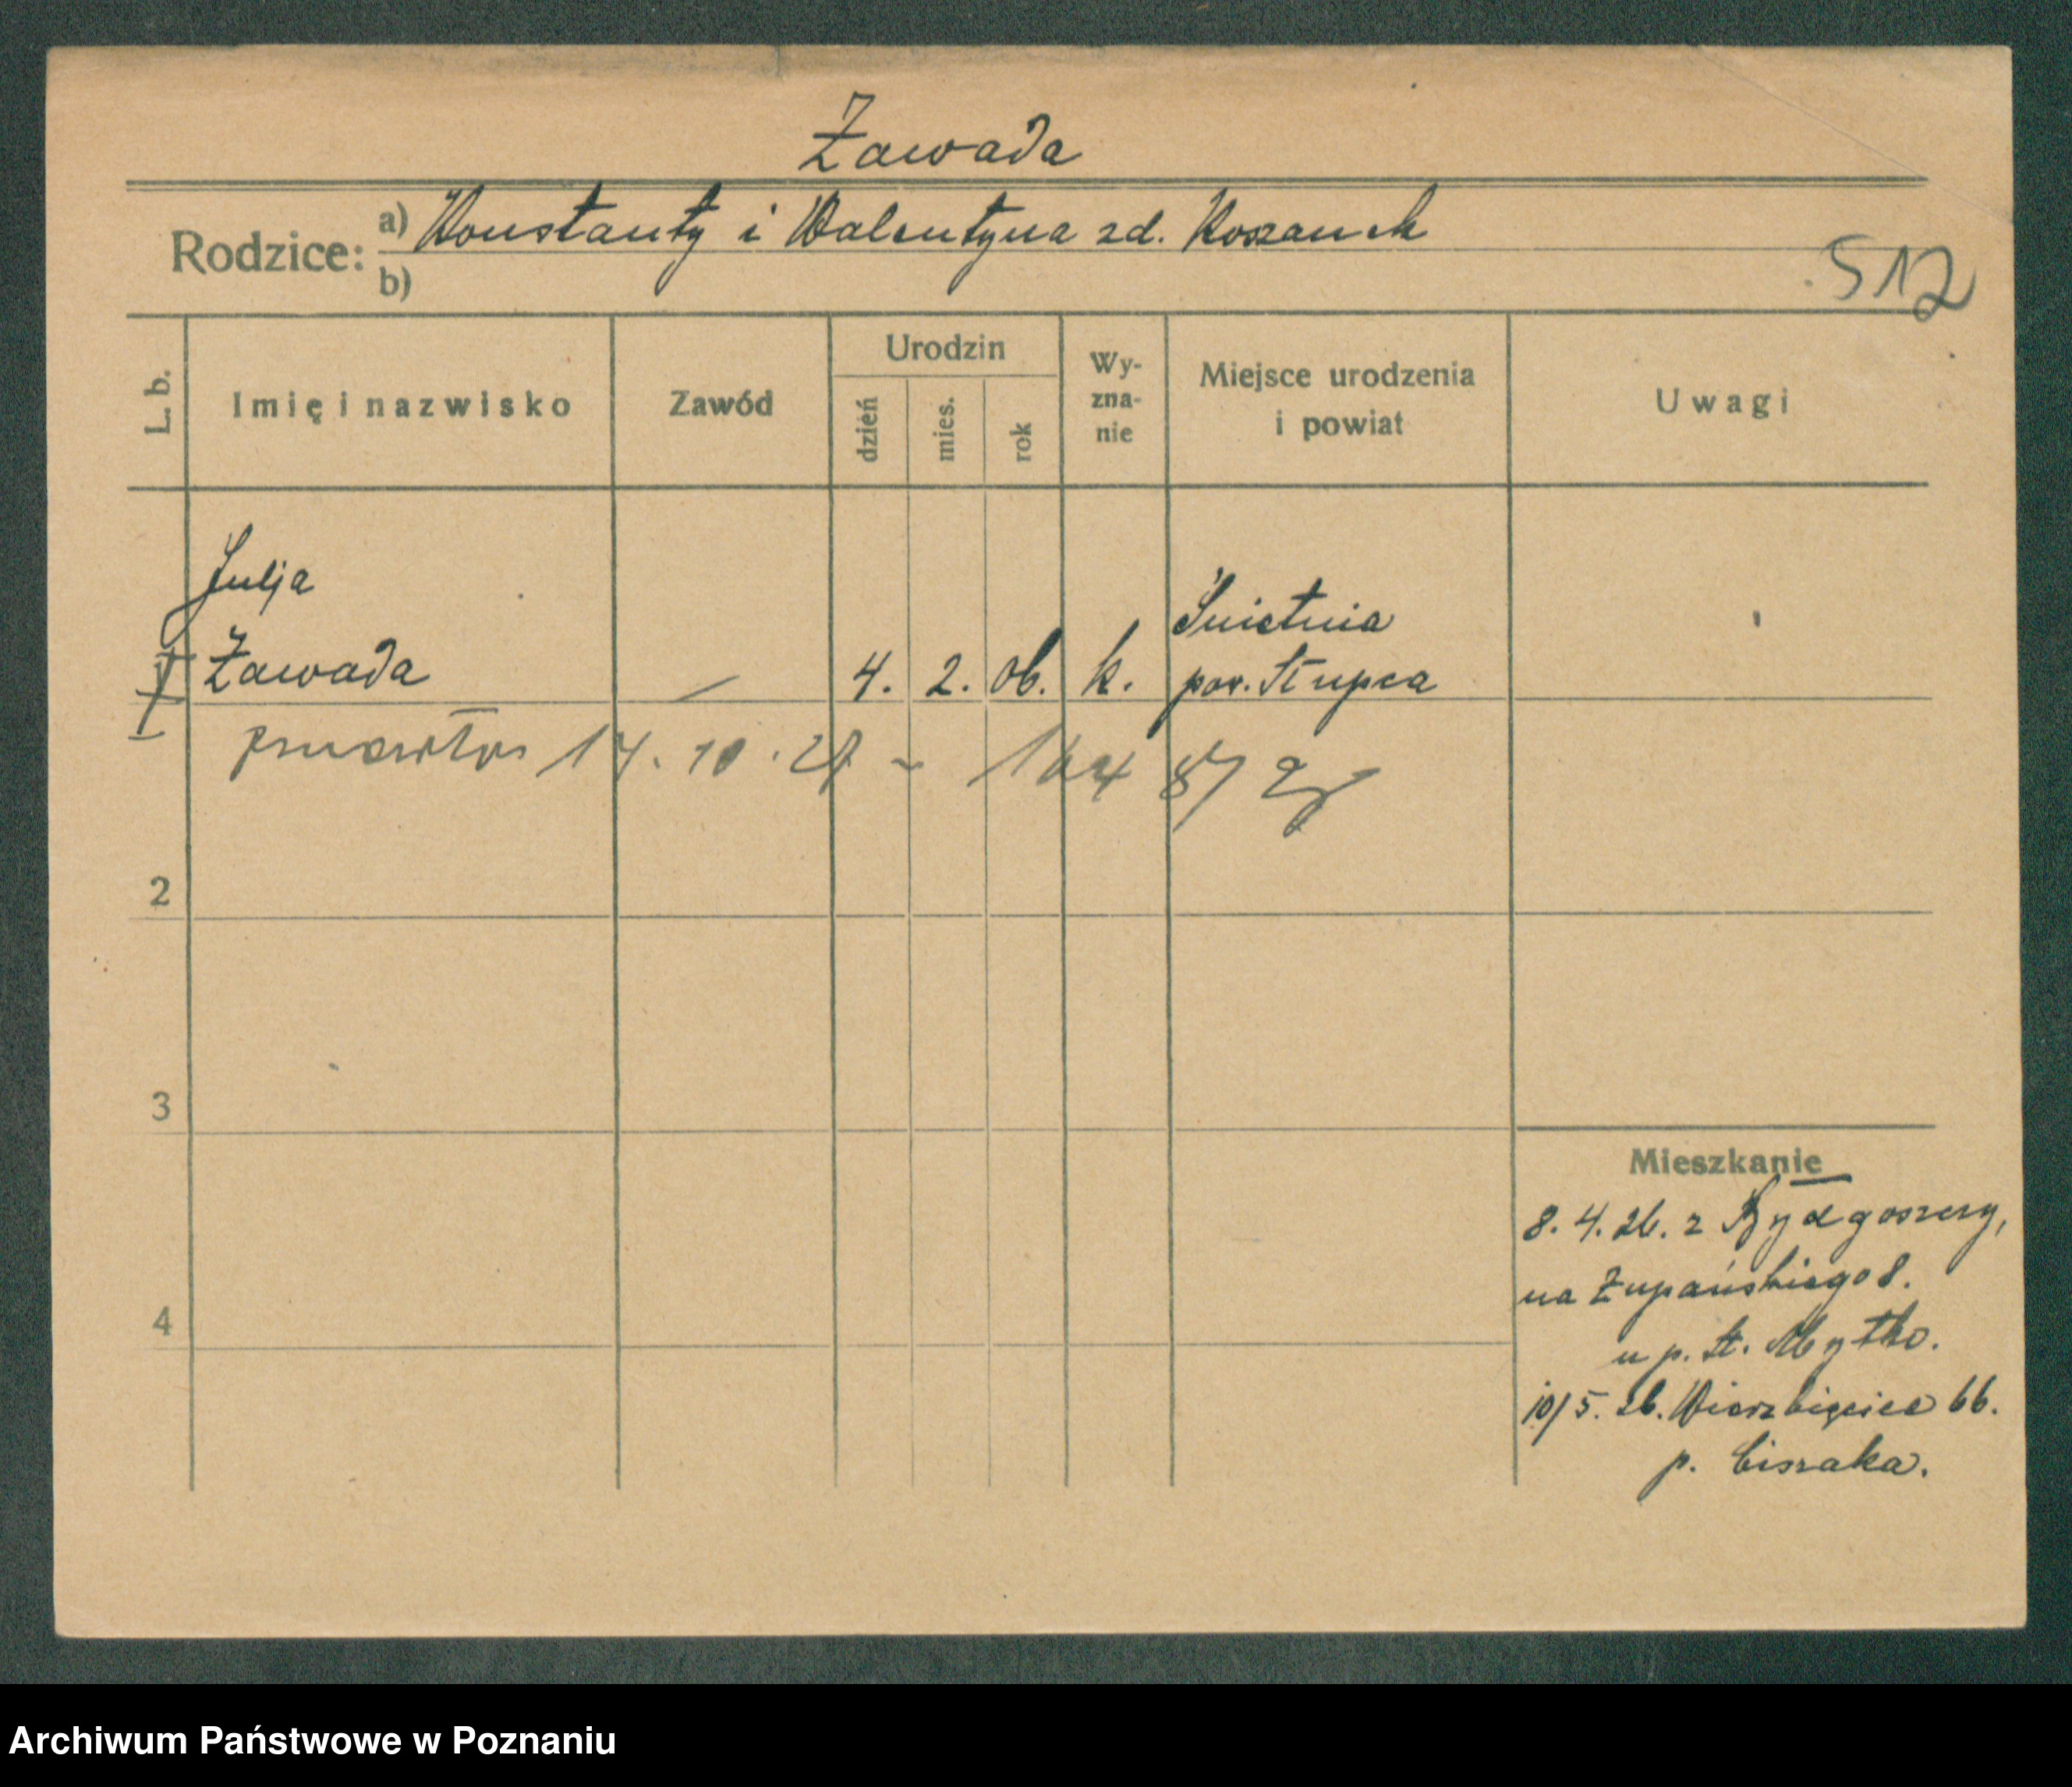 Zawada
Rodzice: a) Konstanty i Walentyna zd. Koszanek
b)
512
L. b. Imię i nazwisko Zawód Urodzin dzień mies. rok Wy-zna-nie Miejsce urodzenia i powiat Uwagi
Julja
Zawada — 4. 2. 06. k. Świetnia
pow. Słupca
zmarła 14.10.27 - 164
2
3
4
Mieszkanie
8. 4. 26. z Bydgoszczy,
na Żupańskiego 8.
u p. St. Mytko.
10/5. 26. Wierzbięcice 66.
p. Ciszaka.
Archiwum Państwowe w Poznaniu